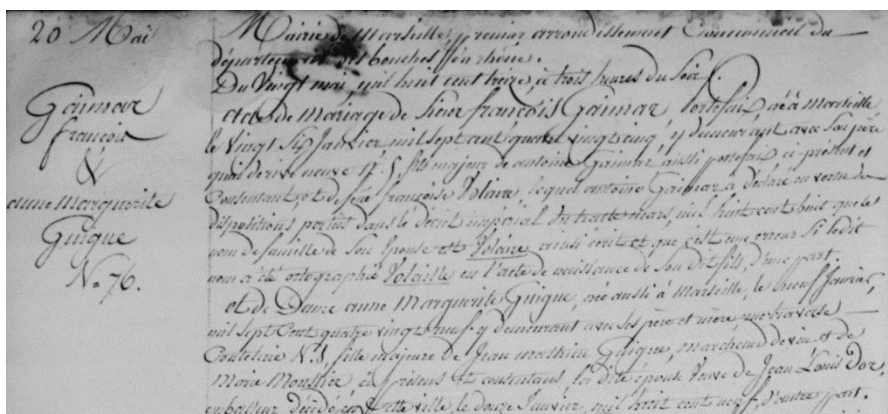 20 Mai
Gaimar
françois
&
anne Marguerite
Guigue
N.° 76.
Mairie de Marseille, premier arrondissement Communal du
département des bouches du rhône.
Du Vingt mai, mil huit cent treize, à trois heures du Soir.
acte de mariage de Sieur françois Gaimar, Portefaix, né à Marseille
le vingt Six Janvier mil sept cent quatre vingt cinq, y demeurant avec Son père
quai derive neuve N.° 5, fils majeur de antoine Gaimar aussi portefaix, ci présent et
Consentant et de françoise Volaire, lequel antoine Gaimar a déclaré en vertu des
dispositions portées dans le décret impérial du trente mars, mil huit cent huit que le
nom de famille de Son épouse est Volaire ainsi écrit et que c'est une erreur Si ledit
nom a été ortographié Volaille en l'acte de naissance de Son dit fils, d'une part.
et de Dame anne Marguerite Guigue, née aussi à Marseille, le neuf Janvier,
mil sept Cent quatre vingt neuf y demeurant avec Ses père et mère rue traverse
Coutelerie N.° 1, fille majeure de Jean mathieu Guigue, marchand de vin et de
Marie Moustier ci présens et consentans, la dite épouse Veuve de Jean Louis Dor,
emballeur décédé en cette ville, le douze Janvier, mil huit cent neuf, d'autre part.